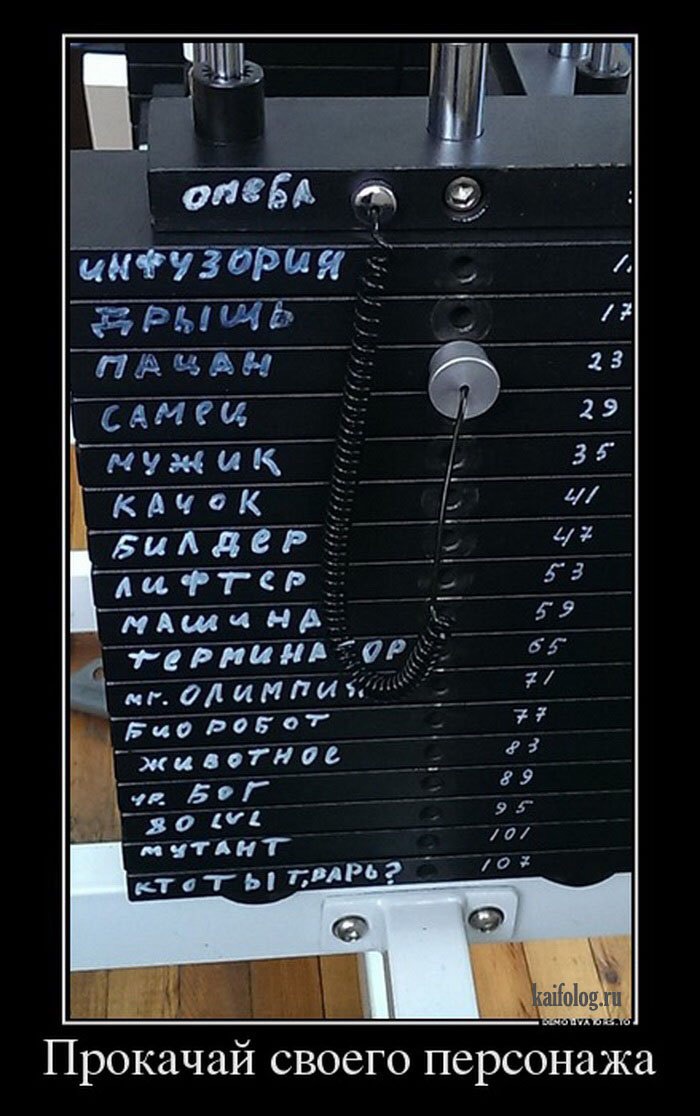 ОМЕБА
ИНФУЗОРИЯ 11
ДРЫЩЬ 17
ПАЦАН 23
САМЕЦ 29
МУЖИК 35
КАЧОК 41
БИЛДЕР 47
ЛИФТЕР 53
МАШИНА 59
ТЕРМИНАТОР 65
мг. ОЛИМПИЯ 71
БИОРОБОТ 77
ЖИВОТНОЕ 83
ур. БОГ 89
80 LVL 95
МУТАНТ 101
КТО ТЫ ТВАРЬ? 107
kaifolog.ru
Прокачай своего персонажа